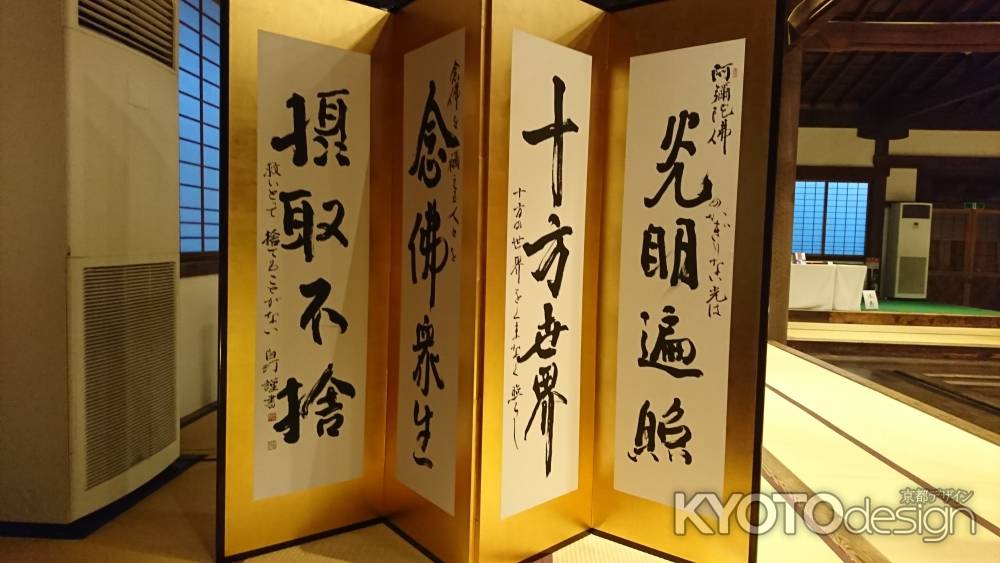 阿彌陀佛
光明遍照
のかぎりない光は
十方世界
十方の世界をくまなく照らし
念佛衆生
念佛を稱える人々を
摂取不捨
救いとって捨てることがない
謹書
京都デザイン
KYOTOdesign